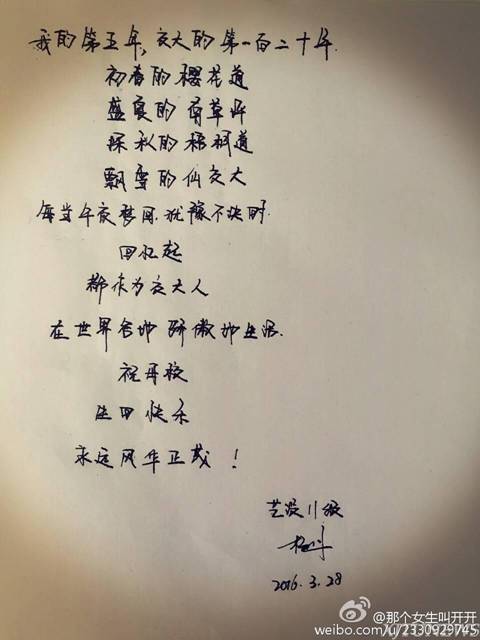 我的第五年,交大的第一百二十年.
初春的樱花道
盛夏的南草坪
深秋的梧桐道
飘雪的仙交大
每当午夜梦回.犹豫不决时
回忆起
都作为交大人
在世界各地 骄傲地生活.
祝母校
生日快乐
永远风华正茂!
艺设11级
2016.3.28
@那个女生叫开开
weibo.com/u/2330929745